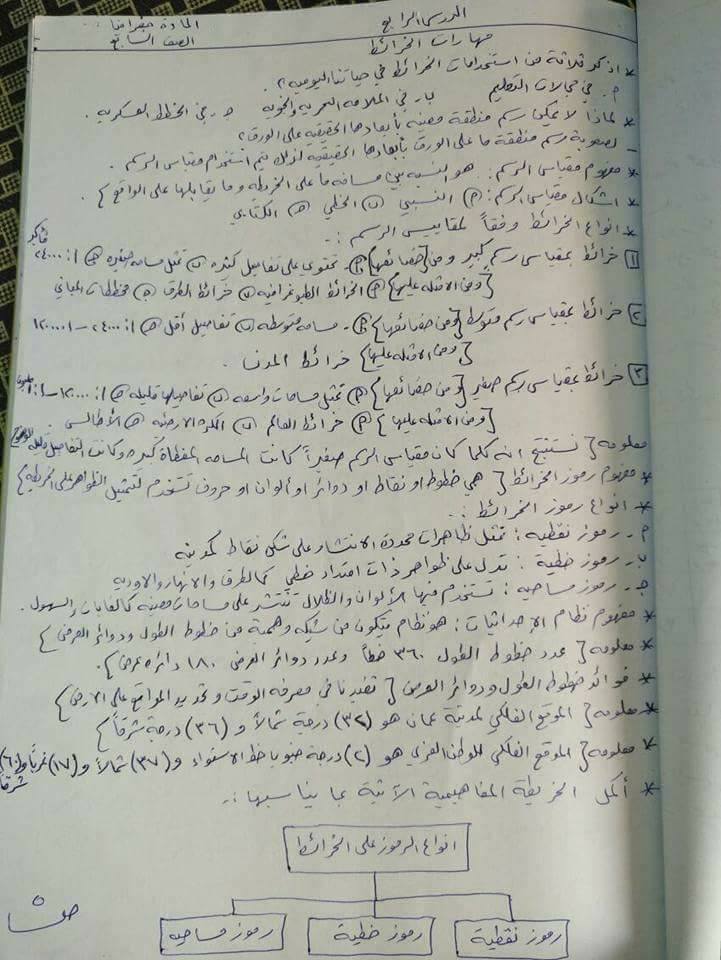 الدرس الرابع
المادة جغرافيا
الصف السابع
مهارات الخرائط
* اذكر ثلاثة من استخدامات الخرائط في حياتنا اليومية؟
أ. في مجالات التعليم ب. في الملاحة البحرية والجوية ج. في الخطط العسكرية.
* لماذا لا يمكن رسم منطقة معينة بأبعادها الحقيقية على الورق؟
- لصعوبة رسم منطقة ما على الورق بأبعادها الحقيقية لذلك يتم استخدام مقياس الرسم.
* مفهوم مقياس الرسم: هو النسبة بين مسافة ما على الخريطة وما يقابلها على الواقع}
* اشكال مقياس الرسم: أ) النسبي ب) الخطي ج) الكتابي
* انواع الخرائط وفقاً لمقاييس الرسم :-
١ خرائط بمقياس رسم كبير ومن {خصائصها} أ- تحتوي على تفاصيل كثيره ب) تمثل مساحه صغيره ج) ١: ٢٤٠٠٠ فأكبر
{ومن الامثله عليها} أ) الخرائط الطبوغرافيه ب) خرائط الطرق ج) مخططات المباني
٢ خرائط بمقياس رسم متوسط {ومن خصائصها} أ- مساحه متوسطه ب) تفاصيل أقل ج) ١: ٢٤٠٠٠ - ١
{ومن الامثله عليها} خرائط المدن.
٣ خرائط بمقياس رسم صغير {ومن خصائصها} أ) تمثل مساحات واسعه ب) تفاصيلها قليله ج)
{ومن الامثله عليها} أ) خرائط العالم ب) الكرة الارضيه ج) الأطالس.
معلومه{ نستنتج انه كلما كان مقياس الرسم صغيراً كانت المساحه المغطاة كبيره وكانت التفاصيل قليله
* مفهوم رموز الخرائط{ هي خطوط او نقاط او دوائر او ألوان او حروف تستخدم لتمثيل الظواهر على الخريطه}
* انواع رموز الخرائط :-
أ. رموز نقطية: تمثل ظاهرات محدودة الانتشار على شكل نقاط كمدينة
ب. رموز خطية: تدل على ظواهر ذات امتداد خطي كالطرق والانهار والاوديه
ج. رموز مساحيه: تستخدم فيها الألوان والظلال تنتشر على مساحات معينه كالغابات والسهول.
* مفهوم نظام الإحداثيات: هو نظام يتكون من شبكة وهمية من خطوط الطول ودوائر العرض}
* معلومه{ عدد خطوط الطول ٣٦٠ خطاً وعدد دوائر العرض ١٨٠ دائره عرض}.
* فوائد خطوط الطول ودوائر العرض{ تفيدنا في معرفه الوقت وتحديد المواقع على الارض}
* معلومه{ الموقع الفلكي لمدينة عمان هو (٣٢) درجة شمالاً و (٣٦) درجة شرقاً}
* معلومه{ الموقع الفلكي للوطن العربي هو (٢) درجة جنوب خط الاستواء و (٣٧) شمالاً و (١٧) غرباً و (٦٠) شرقاً
* أكمل الخريطة المفاهيمية الآتية بما يناسبها :-
انواع الرموز على الخرائط
رموز نقطية
رموز خطية
رموز مساحيه
ص ٥